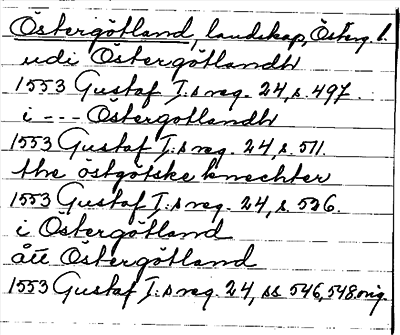 Östergötland, landskap, Österg. l.
udi Östergötlandh
1553 Gustaf I:s reg. 24, s. 497.
i --- Östergotlandh
1553 Gustaf I:s reg. 24, s. 511.
the östgötske knechter
1553 Gustaf I:s reg. 24, s. 526.
i Östergötland
ått Östergötland
1553 Gustaf I:s reg. 24, ss 546, 548 orig.